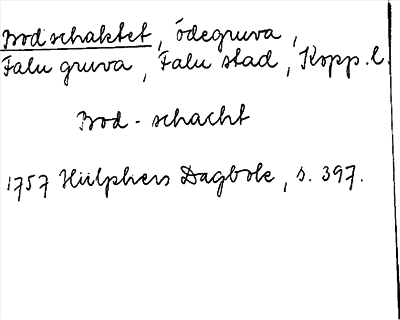 Bodschaktet, ödegruva,
Falu gruva, Falu stad, Kopp.l.
Bod-schacht
1757 Hülphers Dagbok, s. 397.